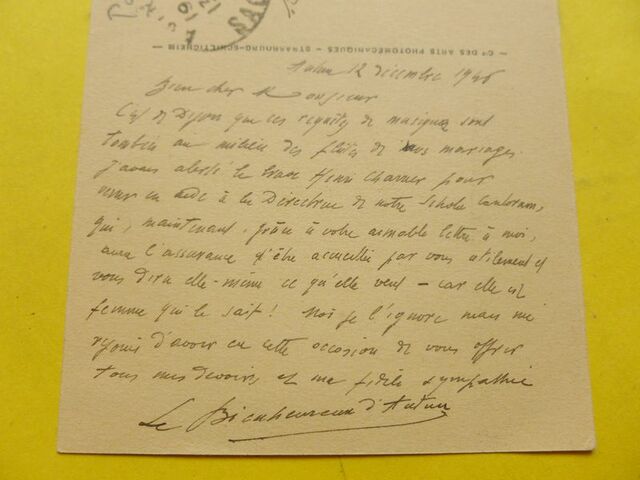 Cie DES ARTS PHOTOMÉCANIQUES - STRASBOURG-SCHILTIGHEIM
Autun 12 décembre 1926
Bien cher Monsieur
C'est de Dijon que ces requêtes de musique sont
tombées au milieu des fêtes de nos mariages.
J'avais alerté le brave Henri Charrier pour
venir en aide à la Directrice de notre Schola cantorum,
qui, maintenant, grâce à votre aimable lettre à moi,
aura l'assurance d'être accueillie par vous utilement et
vous dira elle-même ce qu'elle veut – car elle est
femme qui le sait ! Moi je l'ignore mais me
réjouis d'avoir eu cette occasion de vous offrir
tous mes devoirs et ma fidèle sympathie
Le Bienheureux d'Autun